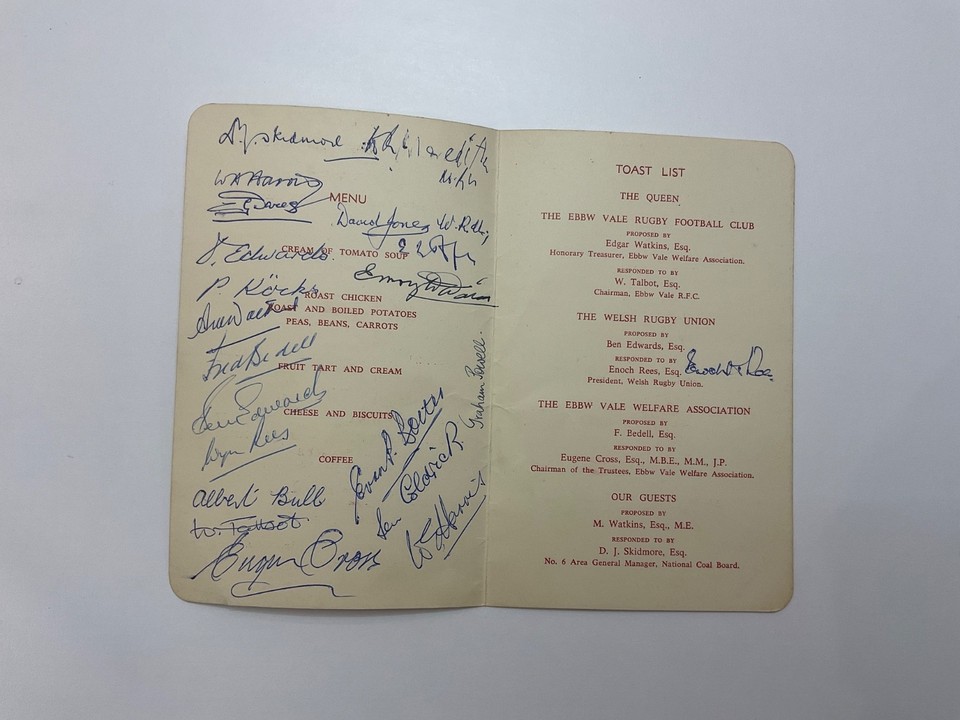 D. J. Skidmore
MENU
David Jones W.R.U.
CREAM OF TOMATO SOUP
Edwards
ROAST CHICKEN
ROAST AND BOILED POTATOES
PEAS, BEANS, CARROTS
Fred Bedell
FRUIT TART AND CREAM
Ben Edwards
CHEESE AND BISCUITS
Wyn Rees
COFFEE
Albert Bull
W. Talbot.
Eugene Cross
Graham Powell.
W E Harris
TOAST LIST
THE QUEEN
THE EBBW VALE RUGBY FOOTBALL CLUB
PROPOSED BY
Edgar Watkins, Esq.
Honorary Treasurer, Ebbw Vale Welfare Association.
RESPONDED TO BY
W. Talbot, Esq.
Chairman, Ebbw Vale R.F.C.
THE WELSH RUGBY UNION
PROPOSED BY
Ben Edwards, Esq.
RESPONDED TO BY
Enoch Rees, Esq. Enoch Rees
President, Welsh Rugby Union.
THE EBBW VALE WELFARE ASSOCIATION
PROPOSED BY
F. Bedell, Esq.
RESPONDED TO BY
Eugene Cross, Esq., M.B.E., M.M., J.P.
Chairman of the Trustees, Ebbw Vale Welfare Association.
OUR GUESTS
PROPOSED BY
M. Watkins, Esq., M.E.
RESPONDED TO BY
D. J. Skidmore, Esq.
No. 6 Area General Manager, National Coal Board.